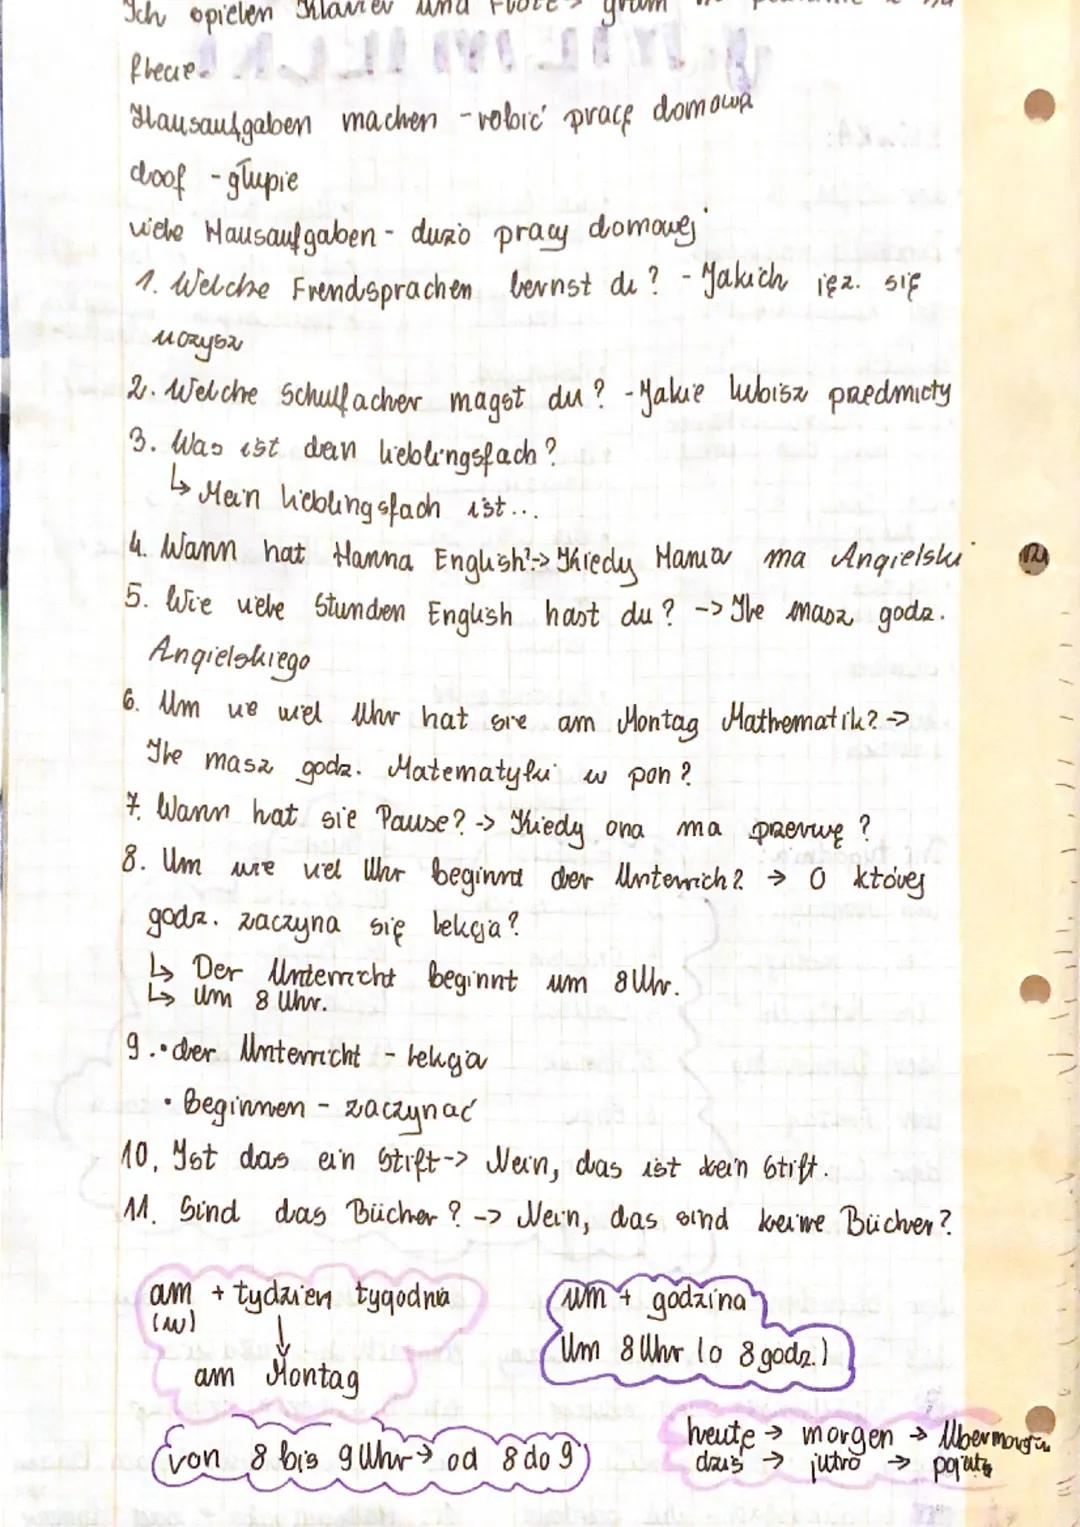 Ich spielen Klavier und Flöte → gram
flecie.
Hausaufgaben machen - robić pracę domową
doof - głupie
viele Hausaufgaben - dużo pracy domowej
1. Welche Frendsprachen lernst du? - Jakich jęz. się
uczysz
2. Welche Schulfacher magst du? - Jakie lubisz przedmioty
3. Was ist dein lieblingsfach?
↳ Mein lieblingsfach ist...
4. Wann hat Hanna English? -> Kiedy Hania ma Angielski
5. Wie viele Stunden English hast du? -> Ile masz godz.
Angielskiego
6. Um wie viel Uhr hat sie am Montag Mathematik? ->
Ile masz godz. Matematyki w pon?
7. Wann hat sie Pause? -> Kiedy ona ma przerwę?
8. Um wie viel Uhr beginnt der Unterrich? → O której
godz. zaczyna się lekcja?
↳ Der Unterricht beginnt um 8 Uhr.
↳ Um 8 Uhr.
9. • der Unterricht - lekcja
• Beginnen - zaczynać
10. Ist das ein Stift -> Nein, das ist kein Stift.
11. Sind das Bücher? -> Nein, das sind keine Bücher?
am + tydzien tygodnia
(w) ↓
am Montag
um + godzina
Um 8 Uhr (o 8 godz.)
von 8 bis 9 Uhr → od 8 do 9
heute → morgen → Ubermorgen
dziś → jutro → pojutrze